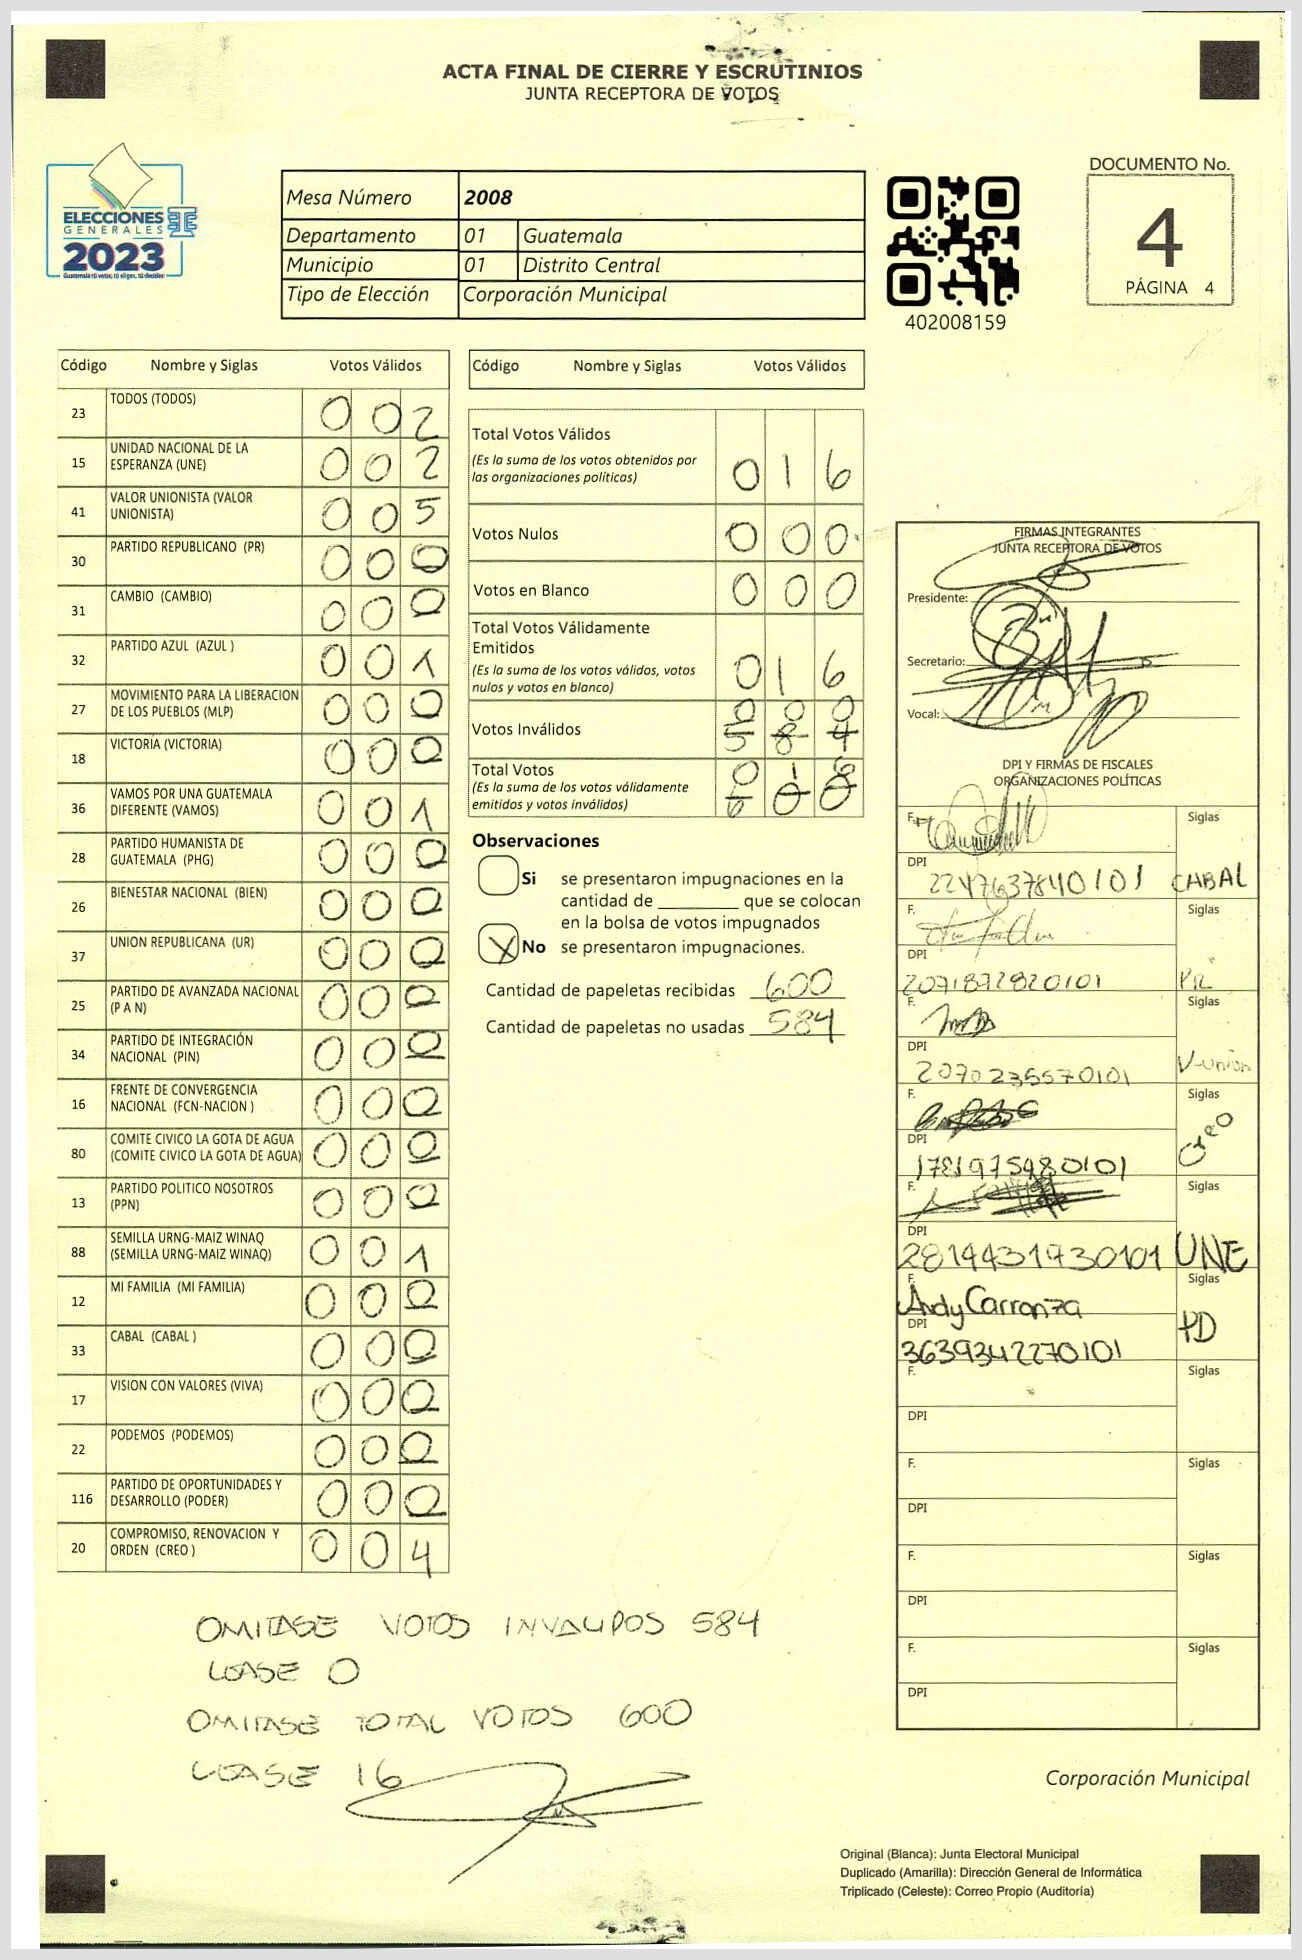 ACTA FINAL DE CIERRE Y ESCRUTINIOS
JUNTA RECEPTORA DE VOTOS
ELECCIONES
GENERALES
2023
Guatemala tú votas, tú eliges, tú decides
Mesa Número 2008
Departamento 01 Guatemala
Municipio 01 Distrito Central
Tipo de Elección Corporación Municipal
402008159
DOCUMENTO No.
4
PÁGINA 4
Código Nombre y Siglas Votos Válidos
23 TODOS (TODOS) 0 0 2
15 UNIDAD NACIONAL DE LA ESPERANZA (UNE) 0 0 2
41 VALOR UNIONISTA (VALOR UNIONISTA) 0 0 5
30 PARTIDO REPUBLICANO (PR) 0 0 0
31 CAMBIO (CAMBIO) 0 0 0
32 PARTIDO AZUL (AZUL ) 0 0 1
27 MOVIMIENTO PARA LA LIBERACION DE LOS PUEBLOS (MLP) 0 0 0
18 VICTORIA (VICTORIA) 0 0 0
36 VAMOS POR UNA GUATEMALA DIFERENTE (VAMOS) 0 0 1
28 PARTIDO HUMANISTA DE GUATEMALA (PHG) 0 0 0
26 BIENESTAR NACIONAL (BIEN) 0 0 0
37 UNION REPUBLICANA (UR) 0 0 0
25 PARTIDO DE AVANZADA NACIONAL (P A N) 0 0 0
34 PARTIDO DE INTEGRACIÓN NACIONAL (PIN) 0 0 0
16 FRENTE DE CONVERGENCIA NACIONAL (FCN-NACION ) 0 0 0
80 COMITE CIVICO LA GOTA DE AGUA (COMITE CIVICO LA GOTA DE AGUA) 0 0 0
13 PARTIDO POLITICO NOSOTROS (PPN) 0 0 0
88 SEMILLA URNG-MAIZ WINAQ (SEMILLA URNG-MAIZ WINAQ) 0 0 1
12 MI FAMILIA (MI FAMILIA) 0 0 0
33 CABAL (CABAL ) 0 0 0
17 VISION CON VALORES (VIVA) 0 0 0
22 PODEMOS (PODEMOS) 0 0 0
116 PARTIDO DE OPORTUNIDADES Y DESARROLLO (PODER) 0 0 0
20 COMPROMISO, RENOVACION Y ORDEN (CREO ) 0 0 4
Código Nombre y Siglas Votos Válidos
Total Votos Válidos 0 1 6
(Es la suma de los votos obtenidos por
las organizaciones políticas)
Votos Nulos 0 0 0
Votos en Blanco 0 0 0
Total Votos Válidamente
Emitidos 0 1 6
(Es la suma de los votos válidos, votos
nulos y votos en blanco)
0 0 0
Votos Inválidos 5 8 4
Total Votos 0 1 6
(Es la suma de los votos válidamente
emitidos y votos inválidos) 6 0 0
Observaciones
Si se presentaron impugnaciones en la
cantidad de ________ que se colocan
en la bolsa de votos impugnados
X No se presentaron impugnaciones.
Cantidad de papeletas recibidas 600
Cantidad de papeletas no usadas 584
FIRMAS INTEGRANTES
JUNTA RECEPTORA DE VOTOS
Presidente:
Secretario:
Vocal:
DPI Y FIRMAS DE FISCALES
ORGANIZACIONES POLÍTICAS
F. Siglas
DPI
2247637840101 CABAL
F. Siglas
DPI
2071872820101 PR
F. Siglas
DPI
2070235570101 V-union
F. Siglas
DPI
1781975980101 Creo
F. Siglas
DPI
2814431930101 UNE
F. Siglas
Andy Carranza
DPI
3639342270101
F. Siglas
DPI
F. Siglas
DPI
F. Siglas
DPI
F. Siglas
DPI
OMITASE VOTOS INVALIDOS 584
LEASE 0
OMITASE TOTAL VOTOS 600
LEASE 16
Corporación Municipal
Original (Blanca): Junta Electoral Municipal
Duplicado (Amarilla): Dirección General de Informática
Triplicado (Celeste): Correo Propio (Auditoría)